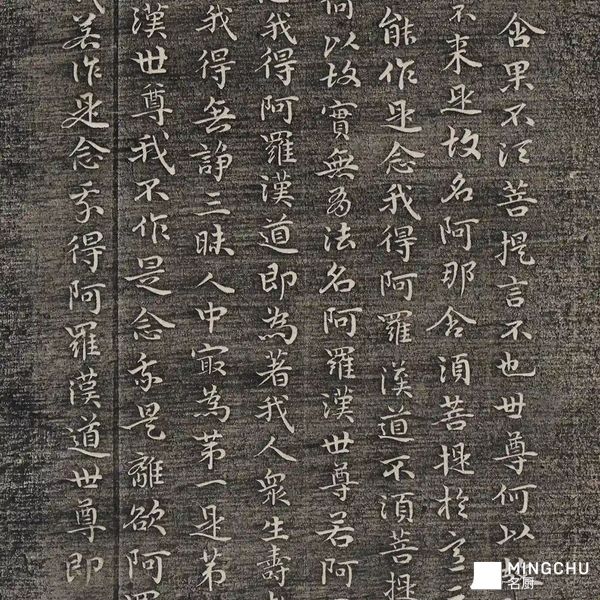 含果不須菩提言不也世尊何以
不来是故名阿那含須菩提於意云
能作是念我得阿羅漢道不須菩提
何以故實無有法名阿羅漢世尊若阿
念我得阿羅漢道即為著我人眾生壽
我得無諍三昧人中最為第一是第
漢世尊我不作是念我是離欲阿羅
我若作是念我得阿羅漢道世尊即
MINGCHU
名厨